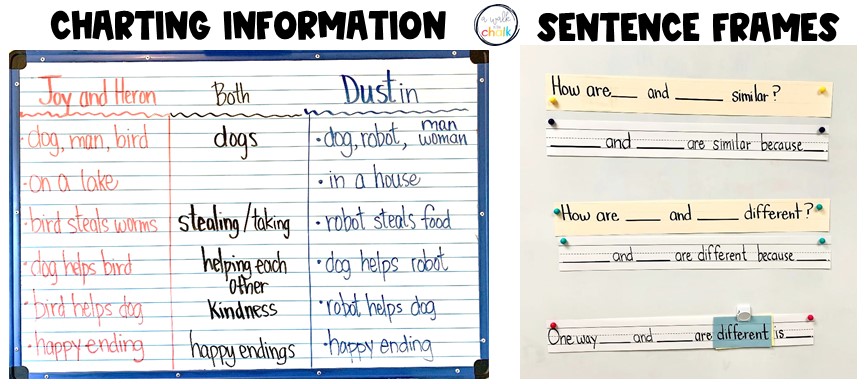 CHARTING INFORMATION
a walk in the chalk
SENTENCE FRAMES
Joy and Heron
Both
Dustin
• dog, man, bird
dogs
• dog, robot, man woman
• on a lake
• in a house
• bird steals worms
stealing/taking
• robot steals food
• dog helps bird
helping each other
• dog helps robot
• bird helps dog
kindness
• robot helps dog
• happy ending
happy endings
• happy ending
How are ___ and ___ similar?
___ and ___ are similar because ___
How are ___ and ___ different?
___ and ___ are different because ___
One way ___ and ___ are different is ___